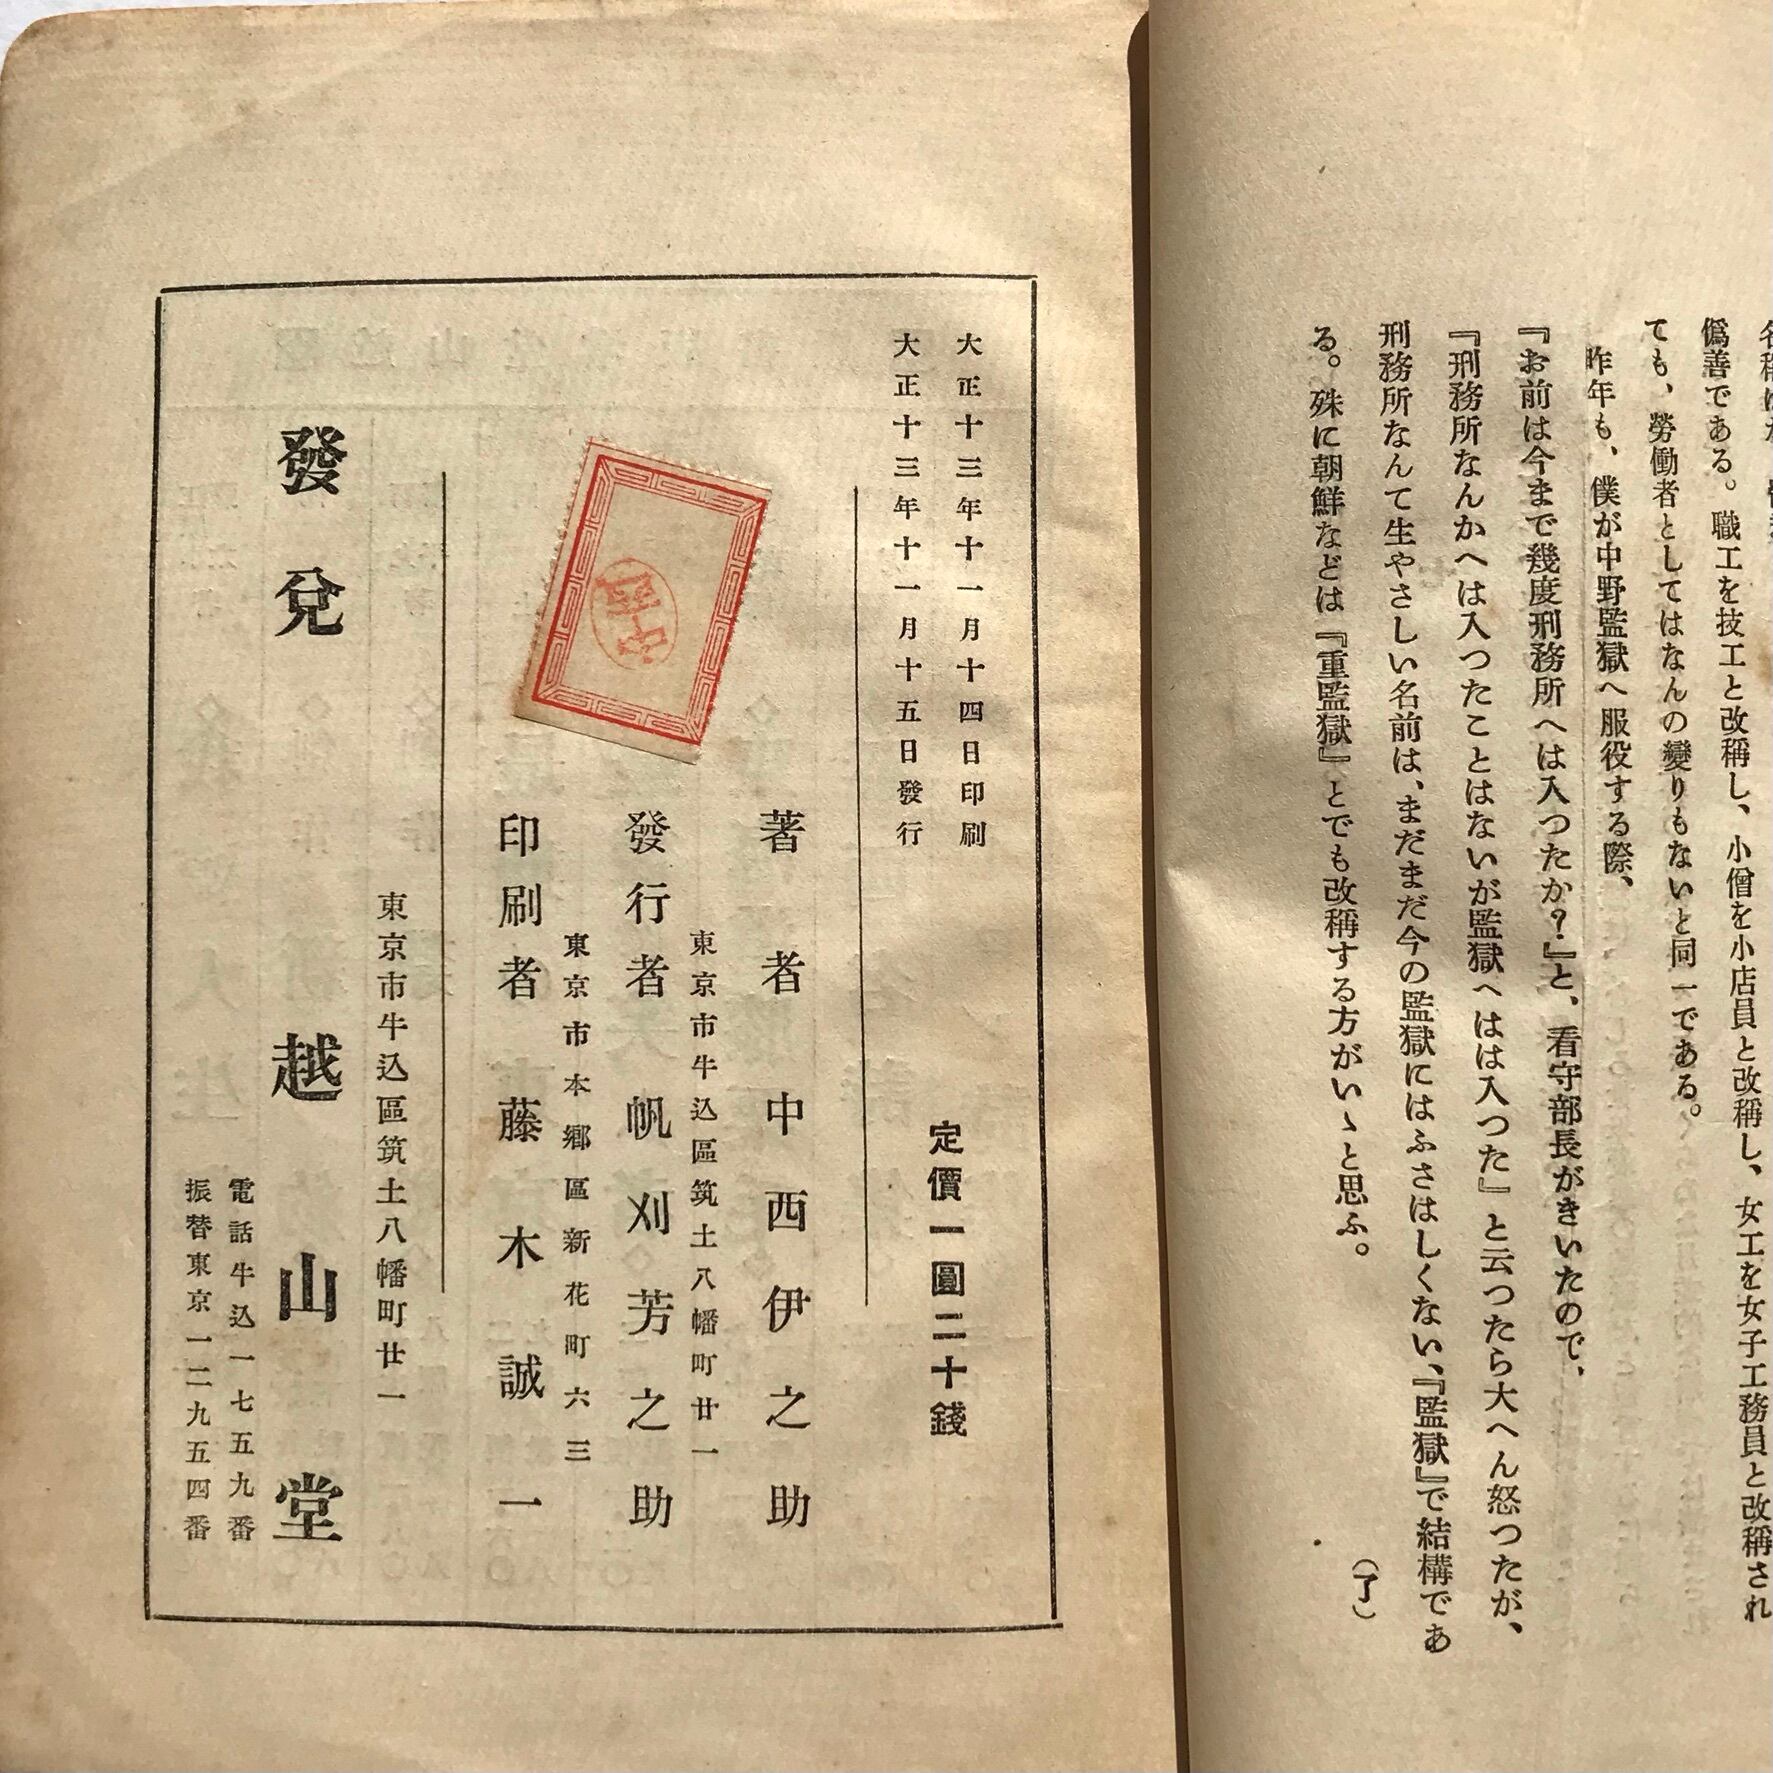 僞善である。職工を技工と改稱し、小僧を小店員と改稱し、女工を女子工務員と改稱され
ても、勞働者としてはなんの變りもないと同一である。
昨年も、僕が中野監獄へ服役する際、
『お前は今まで幾度刑務所へは入つたか？』と、看守部長がきいたので、
『刑務所なんかへは入つたことはないが監獄へはは入つた』と云つたら大へん怒つたが、
刑務所なんて生やさしい名前は、まだまだ今の監獄にはふさはしくない、『監獄』で結構であ
る。殊に朝鮮などは『重監獄』とでも改稱する方がいゝと思ふ。
（了）
大正十三年十一月十四日印刷
大正十三年十一月十五日發行
定價一圓二十錢
著者 中西伊之助
東京市牛込區筑土八幡町廿一
發行者 帆刈芳之助
東京市本郷區新花町六三
印刷者 藤木誠一
東京市牛込區筑土八幡町廿一
發兌 越山堂
電話牛込一七五九番
振替東京一二九五四番